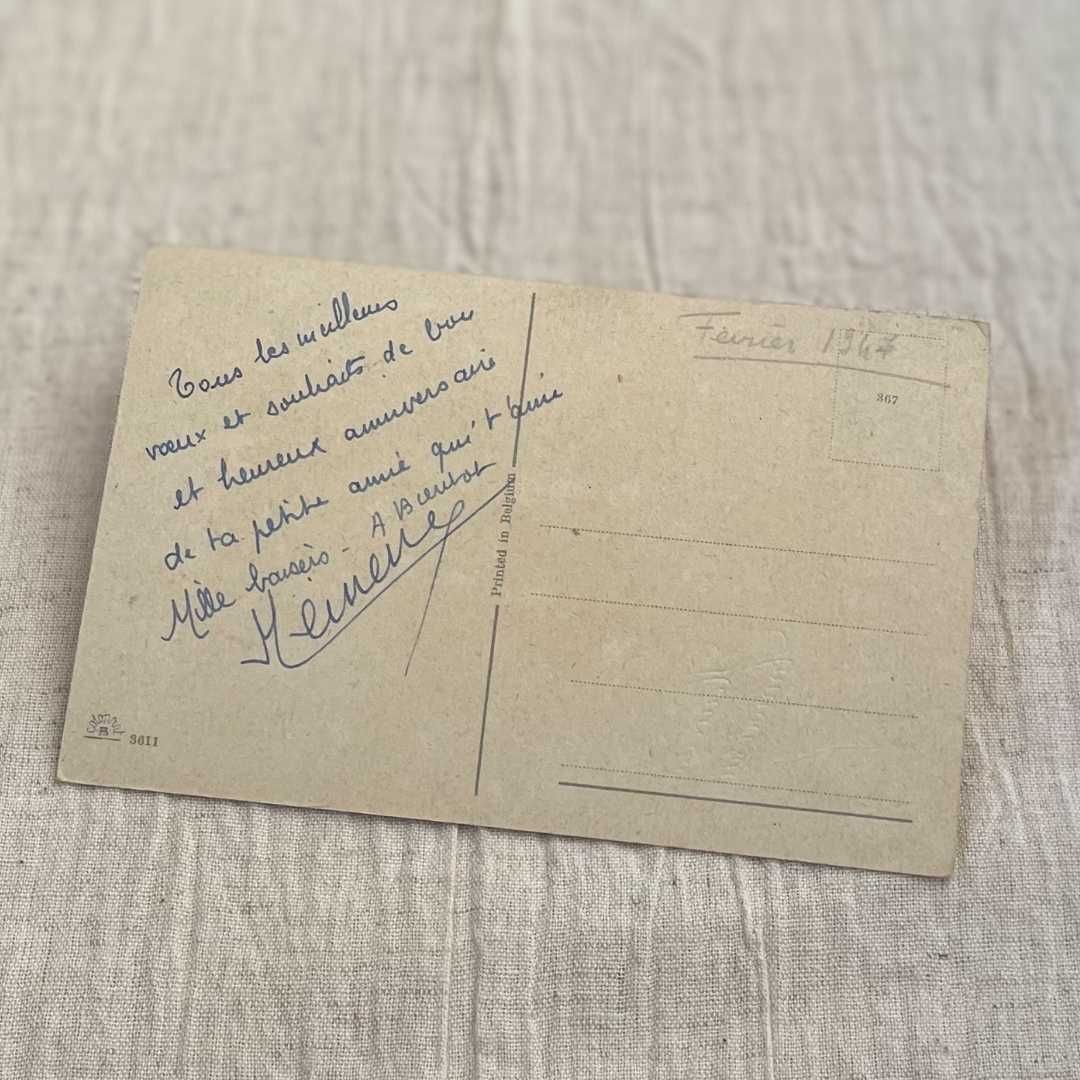 Tous les meilleurs
vœux et souhaits de bon
et heureux anniversaire
de ta petite amie qui t'aime
Mille baisers - A Bientot
Février 1947
367
Printed in Belgium
3611